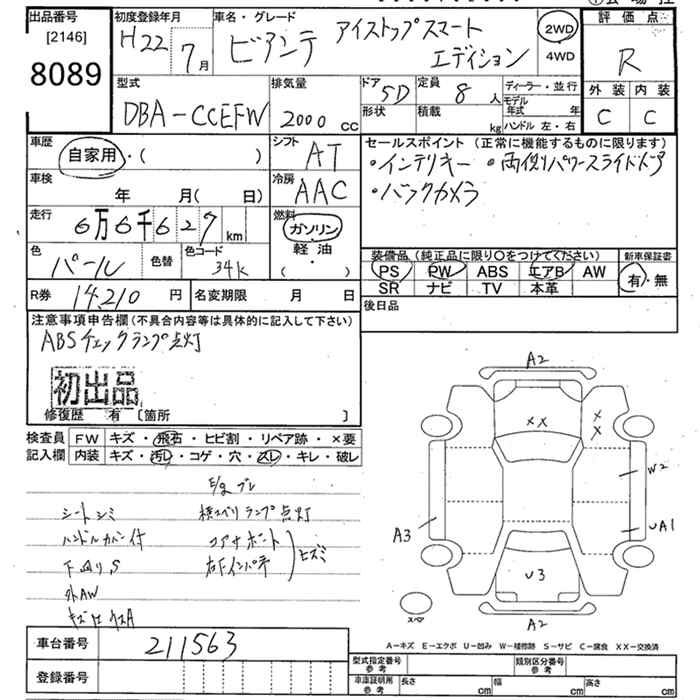 出品番号
[2146]
8089
初度登録年月
H22 7月
車名・グレード
ビアンテ アイストップスマート
エディション
2WD
4WD
評価点
R
外装 内装
C C
型式
DBA-CCEFW
排気量
2000 cc
ドア 5D
形状
定員 8 人
積載 kg
ディーラー・並行
モデル年式 年
ハンドル 左・右
車歴
自家用・( )
シフト AT
車検
年 月(日)
冷房 AAC
走行
6万6千627km
燃料
ガソリン
軽油
( )
色 パール 色替
色コード 34K
R券 14,210 円
名変期限 月 日
セールスポイント (正常に機能するものに限ります)
・インテリキー ・両側パワースライドドア
・バックカメラ
装備品 (純正品に限り○をつけてください)
新車保証書
PS PW ABS エアB AW
SR ナビ TV 本革
有・無
後日品
注意事項申告欄 (不具合内容等は具体的に記入して下さい)
ABSチェックランプ点灯
初出品
修復歴 有 [箇所 ]
検査員 FW キズ・飛石・ヒビ割・リペア跡・×要
記入欄 内装 キズ・汚レ・コゲ・穴・スレ・キレ・破レ
E/g ブレ
シートシミ 横スベリランプ点灯
ハンドルカバー付 コアサポート
下回りS 右Fインパネ ヒズミ
外AW
A2
XX
X
X
W2
UA1
A3
U3
スペア
A2
A-キズ E-エクボ U-凹み W-補修跡 S-サビ C-腐食 XX-交換済
車台番号 211563
登録番号
型式指定番号
参考
類別区分番号
参考
車庫証明用
参考
長さ cm 幅 cm 高さ cm